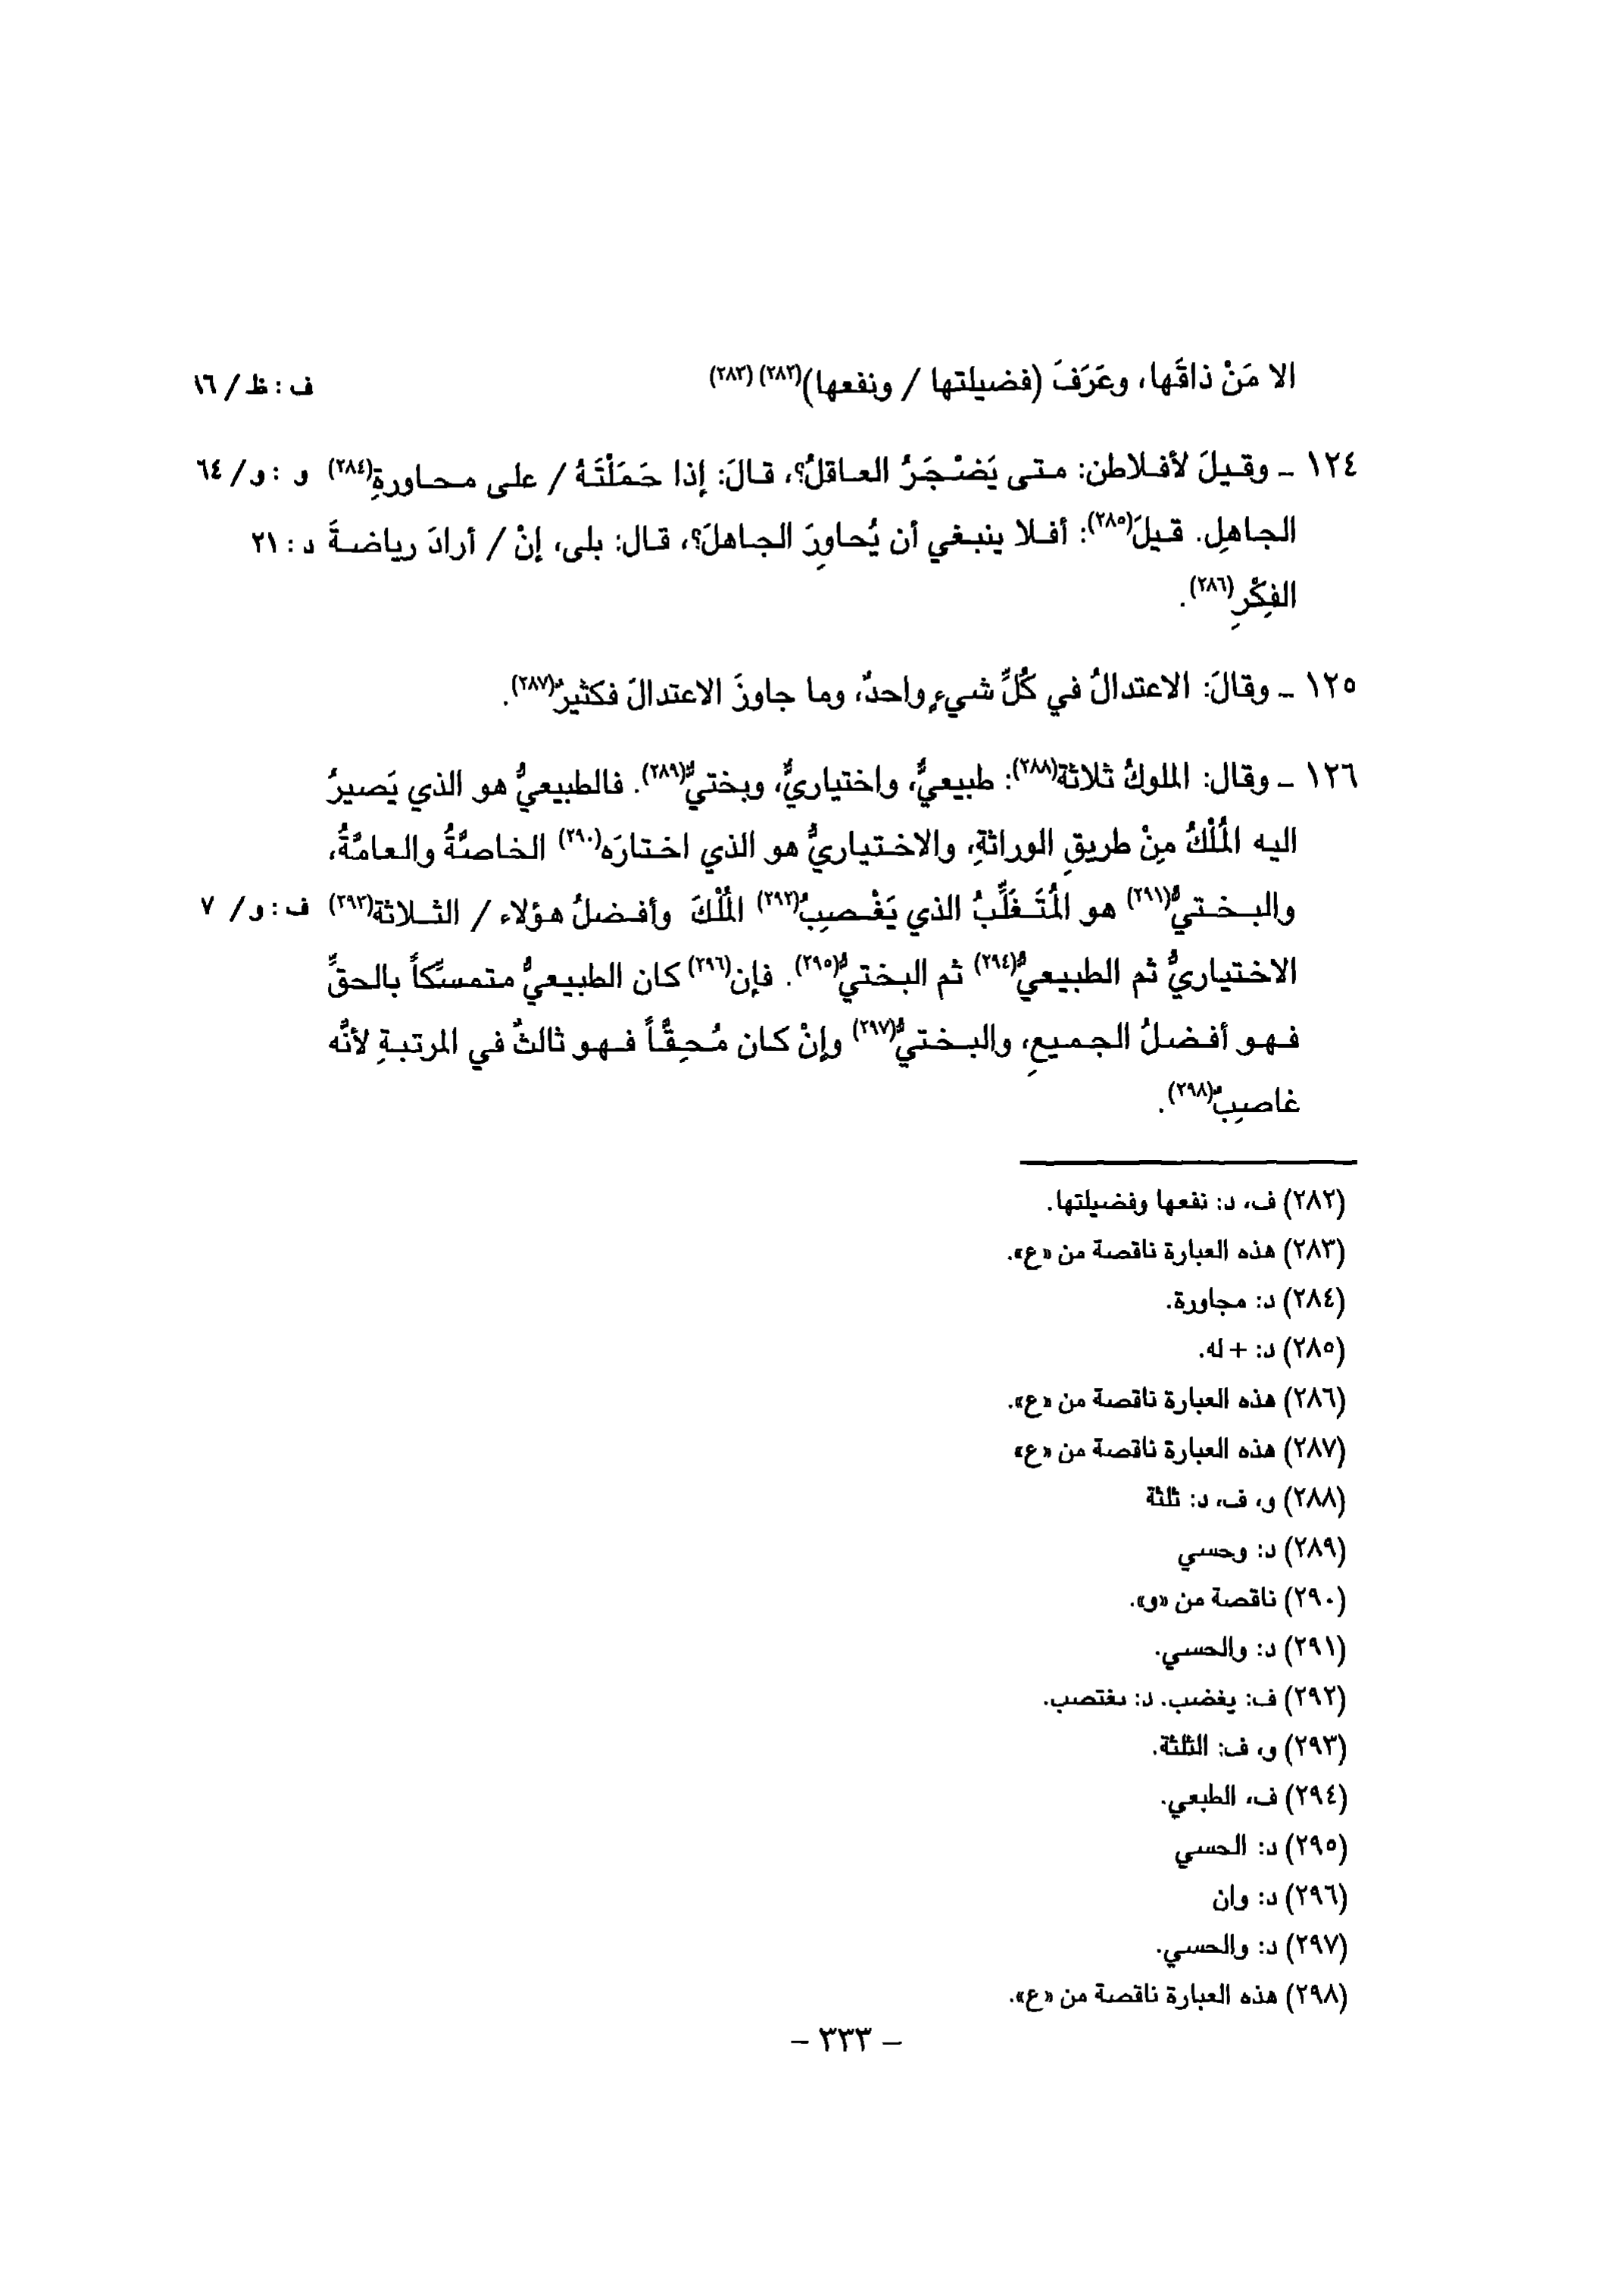 الا مَنْ ذاقَها، وعَرَفَ (فضيلتها / ونفعها)(٢٨٢) (٢٨٣) ف : ظ / ١٦
١٢٤ ـ وقيلَ لأفلاطن: متى يَضْجَرُ العاقلُ؟، قالَ: إذا حَمَلْتَهُ / على محاورةِ(٢٨٤) و : و / ٦٤
الجاهلِ. قيلَ(٢٨٥): أفلا ينبغي أن يُحاوِرَ الجاهلَ؟، قال: بلى، إنْ / أرادَ رياضةَ د : ٢١
الفِكْرِ(٢٨٦).
١٢٥ ـ وقالَ: الاعتدالُ في كُلِّ شيءٍ واحدٌ، وما جاوزَ الاعتدالَ فكثيرٌ(٢٨٧).
١٢٦ ـ وقال: الملوكُ ثلاثة(٢٨٨): طبيعيٌّ، واختياريٌّ، وبختيٌّ(٢٨٩). فالطبيعيُّ هو الذي يَصيرُ
اليه المُلْكُ مِنْ طريقِ الوراثةِ، والاختياريُّ هو الذي اختارَه(٢٩٠) الخاصَّةُ والعامَّةُ،
والبختيُّ(٢٩١) هو المُتَغَلِّبُ الذي يَغْصِبُ(٢٩٢) المُلْكَ وأفضلُ هؤلاء / الثلاثة(٢٩٣) ف : و / ٧
الاختياريُّ ثم الطبيعيُّ(٢٩٤) ثم البختيُّ(٢٩٥). فإن(٢٩٦) كان الطبيعيُّ متمسِّكاً بالحقِّ
فهو أفضلُ الجميعِ، والبختيُّ(٢٩٧) وإنْ كان مُحِقَّاً فهو ثالثٌ في المرتبةِ لأنَّه
غاصِبٌ(٢٩٨).
(٢٨٢) ف، د: نفعها وفضيلتها.
(٢٨٣) هذه العبارة ناقصة من «ع».
(٢٨٤) د: مجاورة.
(٢٨٥) د: + له.
(٢٨٦) هذه العبارة ناقصة من «ع».
(٢٨٧) هذه العبارة ناقصة من «ع»
(٢٨٨) و، ف، د: ثلثة
(٢٨٩) د: وحسي
(٢٩٠) ناقصة من «و».
(٢٩١) د: والحسي.
(٢٩٢) ف: يغضب. د: ىغتصب.
(٢٩٣) و، ف: الثلثة.
(٢٩٤) ف، الطبعي.
(٢٩٥) د: الحسي
(٢٩٦) د: وان
(٢٩٧) د: والحسي.
(٢٩٨) هذه العبارة ناقصة من «ع».
– ٣٣٣ –